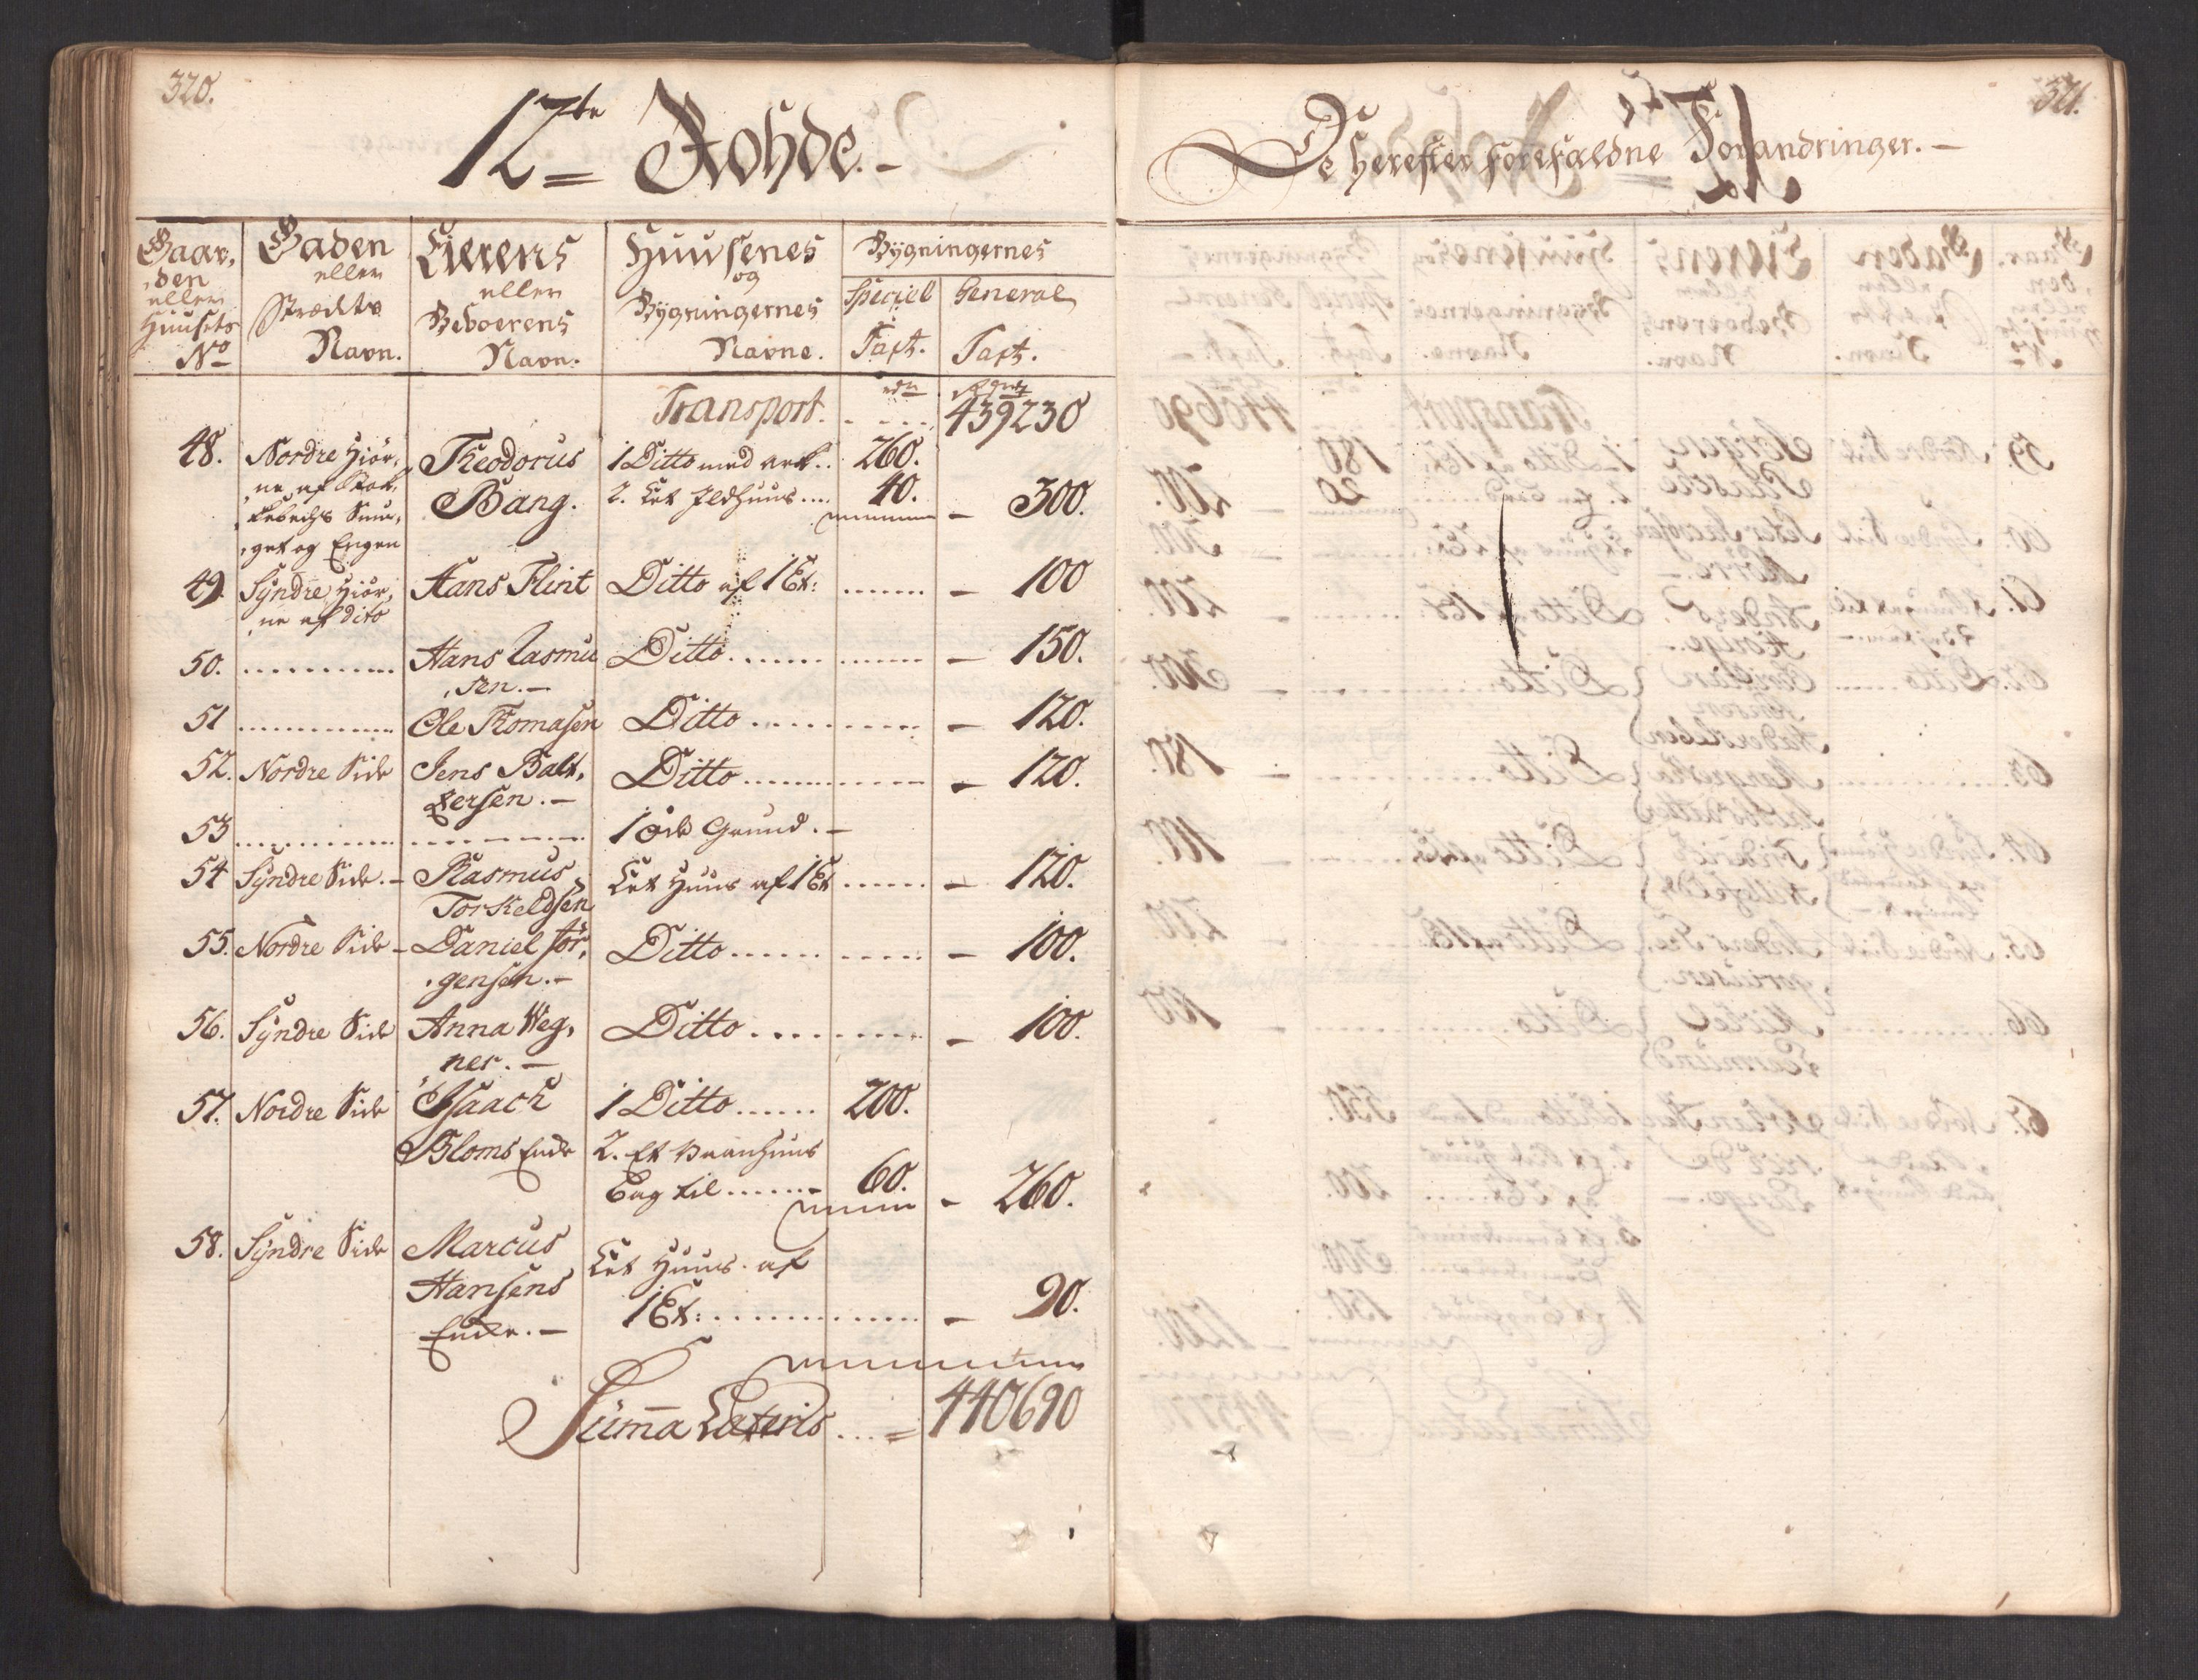 320.
12te Rohde.
Gaar,
den
eller
Huusets
No
Gaden
eller
Strædets
Navn.
Eierens
eller
Beboerens
Navn.
Huusenes
og
Bygningernes
Navne.
Bygningernes
Speciel
Taxt.
General
Taxt.
Transport. . . . . 439230
48. Nordre Hiør, Theodorus 1 Ditto med 260.
ne af
Bang. 2. Let Ildhuus .... 40. — 300.
get og Engen
49. Syndre Hiør, Hans Flint Ditto af 1 Et: ....... — 100
ne af dito
50. ............ Hans Rasmu Ditto ............ — 150.
sen. —
51 ............ Ole Thomasen Ditto ............ — 120.
52. Nordre Side Jens Balt, Ditto ............ — 120.
zersen. —
53 ............ ............ 1 øde Grund. —
54 Syndre Side. — Rasmus Let Huus af 1 Et ...... — 120.
Torkeldsen
55. Nordre Side — Daniel Jør, Ditto ............ — 100.
gensen. —
56. Syndre Side Anna Weg, Ditto ............ — 100.
ner. —
57. Nordre Side Isaach 1 Ditto ...... 200.
Bloms Enke 2. Et
til ...... 60. — 260.
58. Syndre Side Marcus Let Huus af
Hansens 1 Et: ............ — 90.
Enke. —
Summa Lateris .... = 440690
321.
De herefter forefaldne Forandringer. —